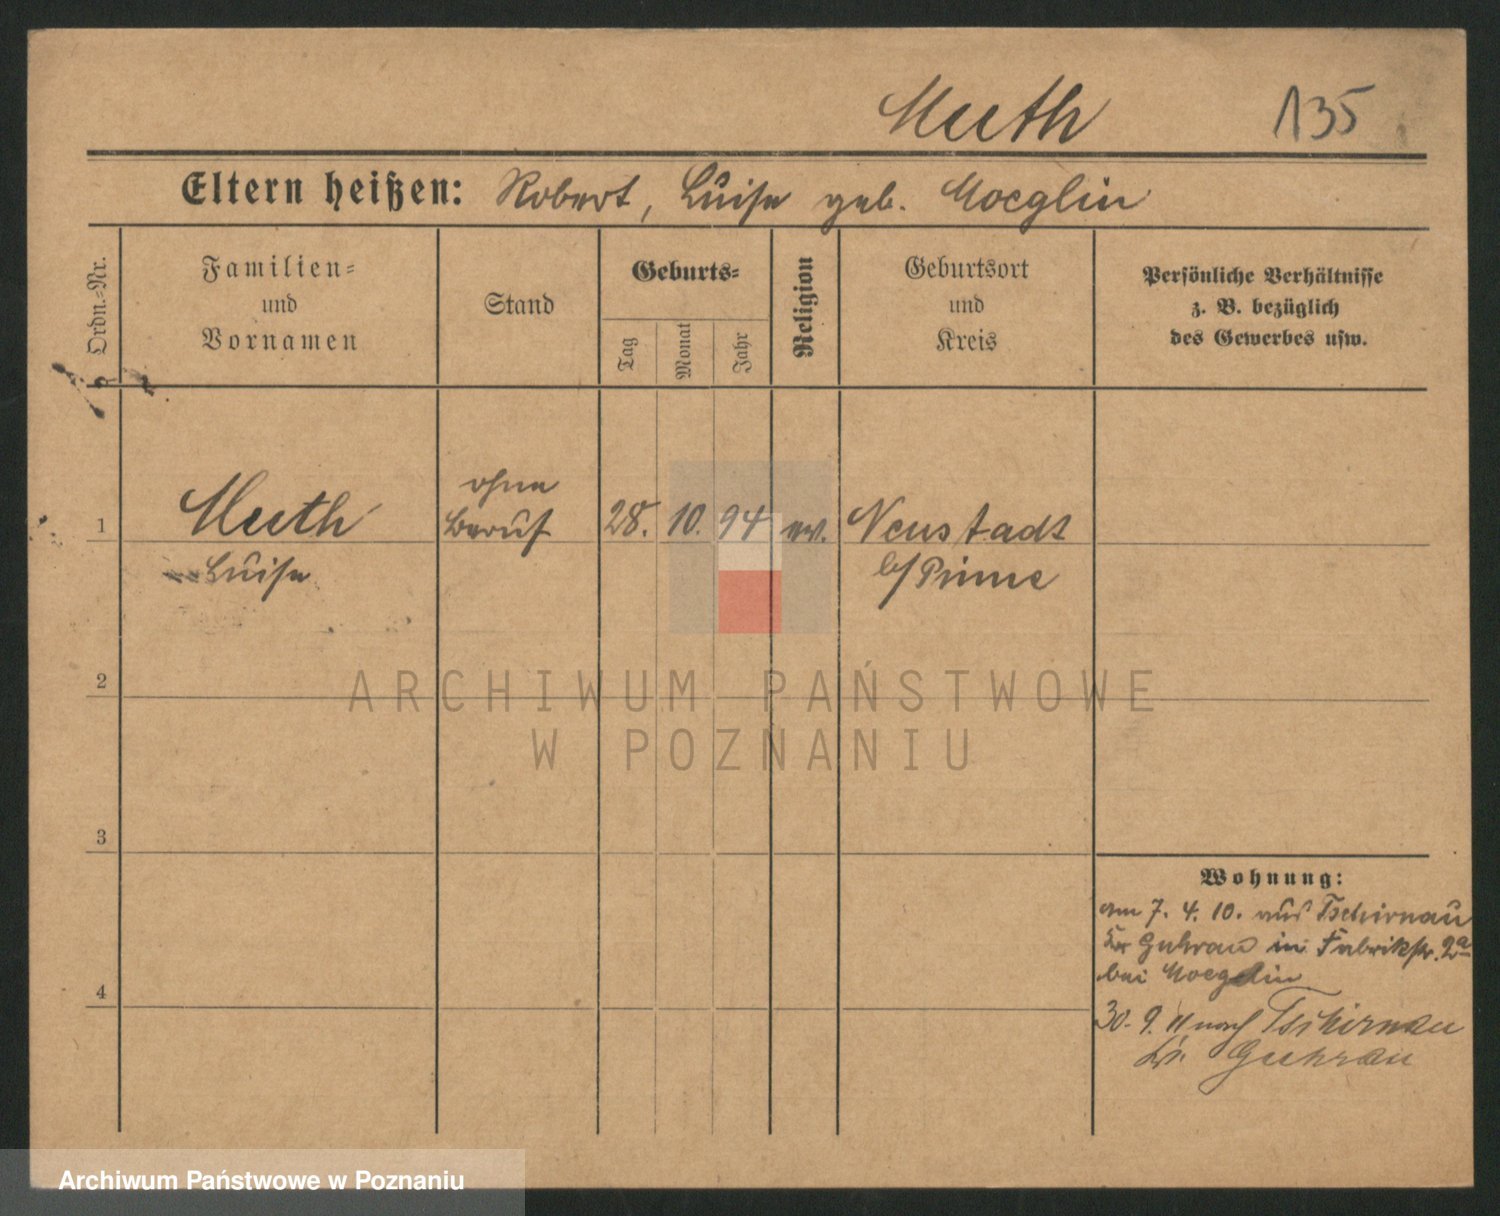 Muth 135
Eltern heißen: Robert, Luise geb. Moeglin
Ordn.-Nr.
Familien-
und
Vornamen
Stand
Geburts-
Tag
Monat
Jahr
Religion
Geburtsort
und
Kreis
Persönliche Verhältnisse
z. B. bezüglich
des Gewerbes usw.
ohne
1 Muth Beruf 28. 10. 94 ev. Neustadt
Luise b/Pinne
2
ARCHIWUM PAŃSTWOWE
W POZNANIU
3
Wohnung:
am 7. 4. 10. aus Tschirnau
Kr Guhrau in Fabrikstr. 2a
bei Moeglin
4
30. 9. 11 nach Tschirnau
Kr. Guhrau
Archiwum Państwowe w Poznaniu